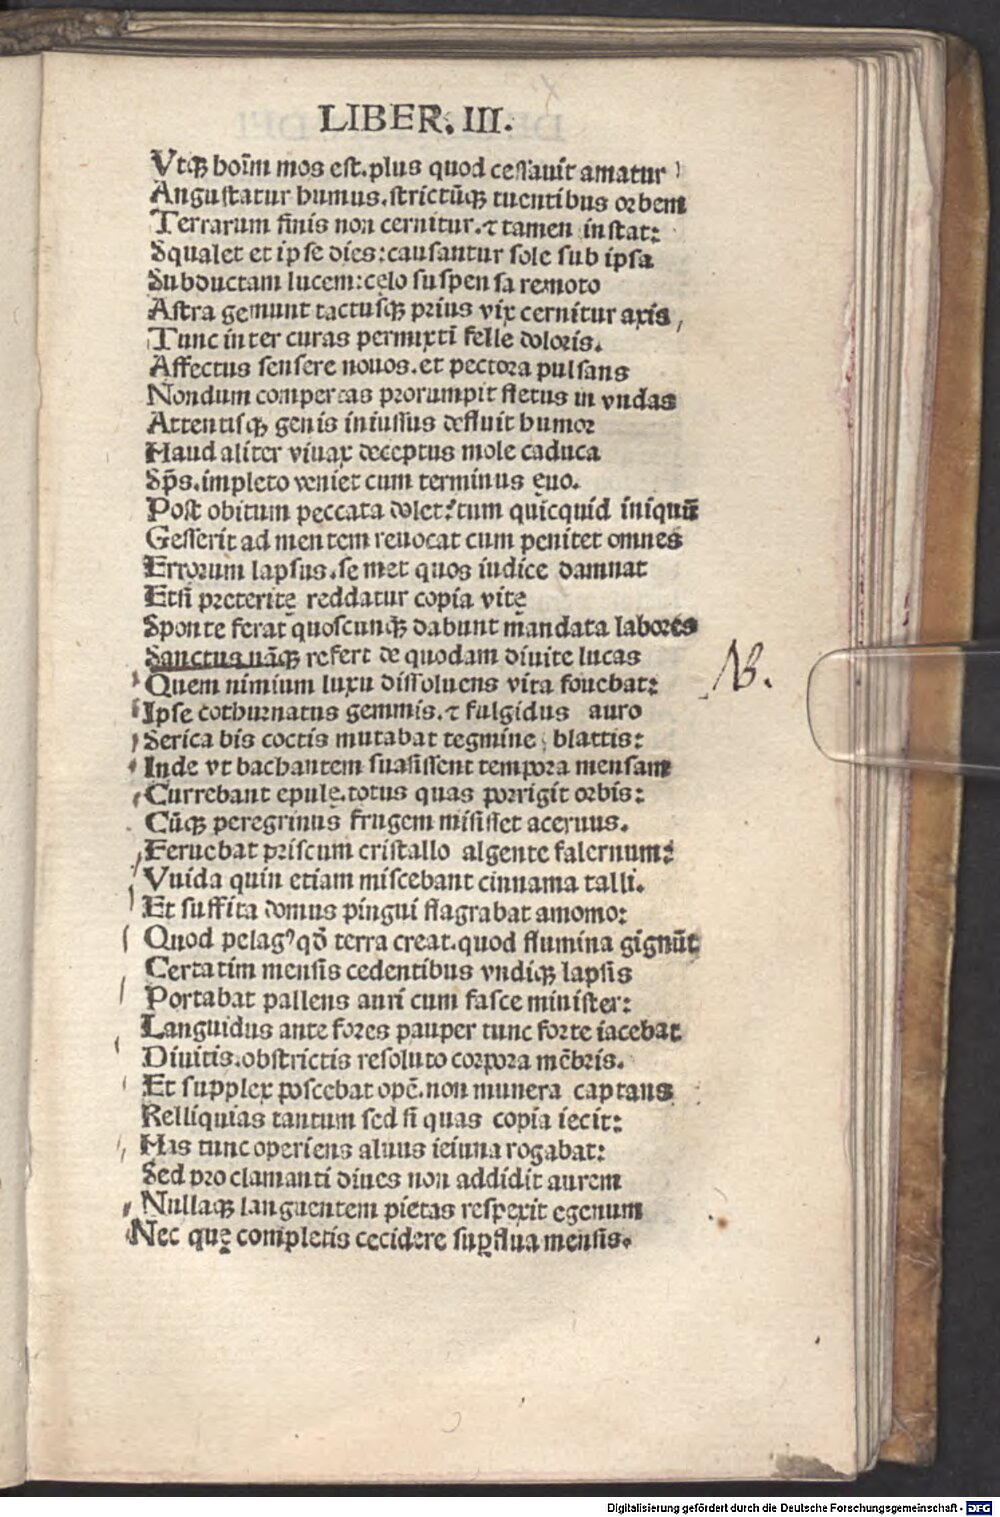 LIBER. III.
Vtq; hoīm mos est. plus quod cessauit amatur
Angustatur humus. strictūq; tuentibus orbem
Terrarum finis non cernitur. ⁊ tamen instat:
Squalet et ipse dies: causantur sole sub ipsa
Subductam lucem: celo suspensa remoto
Astra gemunt tactusq; prius vix cernitur axis,
Tunc inter curas permixti felle doloris.
Affectus sensere nouos. et pectora pulsans
Nondum compertas prorumpit fletus in vndas
Attentisq; genis iniussus defluit humor
Haud aliter viuax deceptus mole caduca
Sp̄s. impleto veniet cum terminus ęuo.
Post obitum peccata dolet: tum quicquid iniquū
Gesserit ad mentem reuocat cum penitet omnes
Errorum lapsus. se met quos iudice damnat
Etsi preteritę reddatur copia vitę
Sponte ferat quoscunq; dabunt mandata labores
Sanctus nāq; refert de quodam diuite lucas
NB.
Quem nimium luxu dissoluens vita fouebat:
Ipse cothurnatus gemmis. ⁊ fulgidus auro
Serica bis coctis mutabat tegmine blattis:
Inde vt bachantem suasissent tempora mensam
Currebant epulę. totus quas porrigit orbis:
Cūq; peregrinus frugem misisset aceruus.
Feruebat priscum cristallo algente falernum:
Vuida quin etiam miscebant cinnama talli.
Et suffita domus pingui flagrabat amomo:
Quod pelagꝰ qð terra creat. quod flumina gignūt
Certatim mensis cedentibus vndiq; lapsis
Portabat pallens auri cum fasce minister:
Languidus ante fores pauper tunc forte iacebat
Diuitis. obstrictis resoluto corpora mēbris.
Et supplex poscebat opē. non munera captans
Relliquias tantum sed si quas copia iecit:
Has tunc operiens aluus ieiuna rogabat:
Sed pro clamanti diues non addidit aurem
Nullaq; languentem pietas respexit egenum
Nec quę completis cecidere suꝑflua mensis.
Digitalisierung gefördert durch die Deutsche Forschungsgemeinschaft - DFG